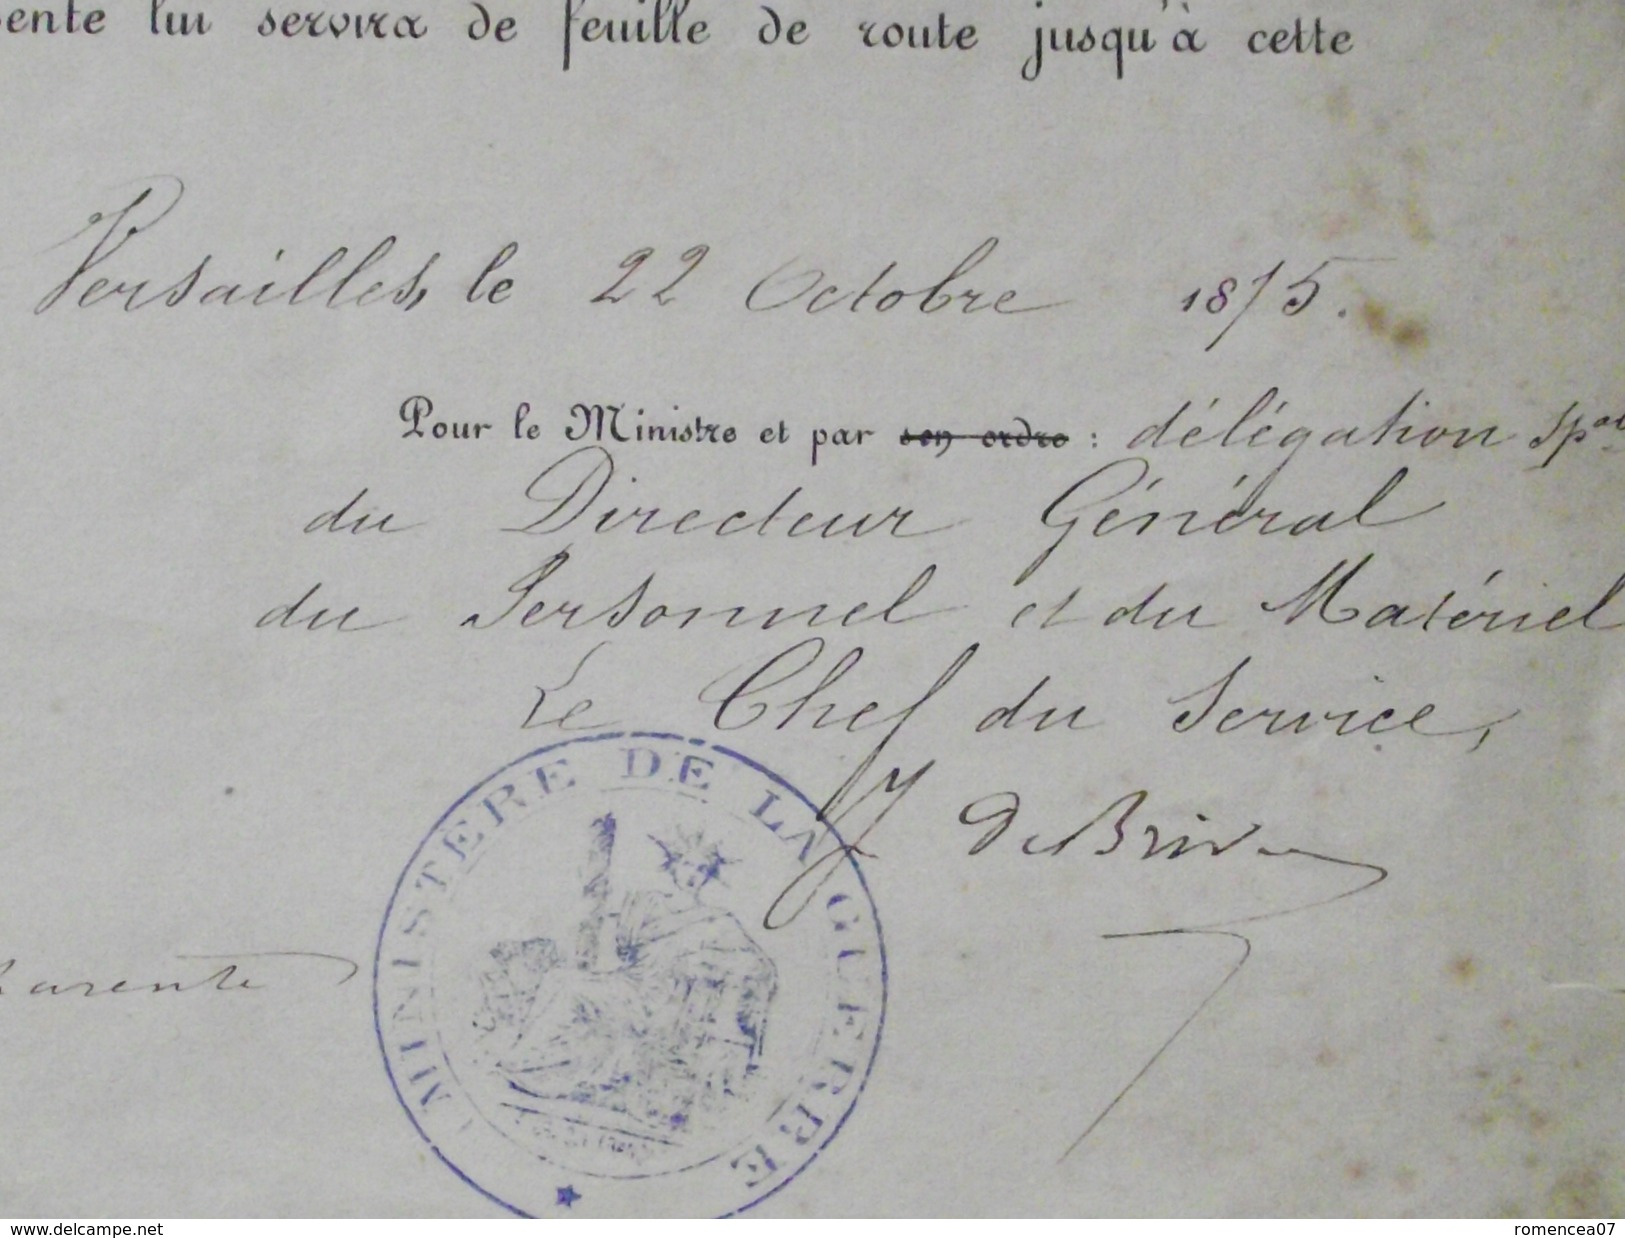 ente lui servira de feuille de route jusqu'à cette
Versailles, le 22 Octobre 1875.
Pour le Ministre et par son ordre : délégation Spal
du Directeur Général
du Personnel et du Matériel
Le Chef du Service,
MINISTÈRE DE LA GUERRE
harente
www.delcampe.net
romencea07